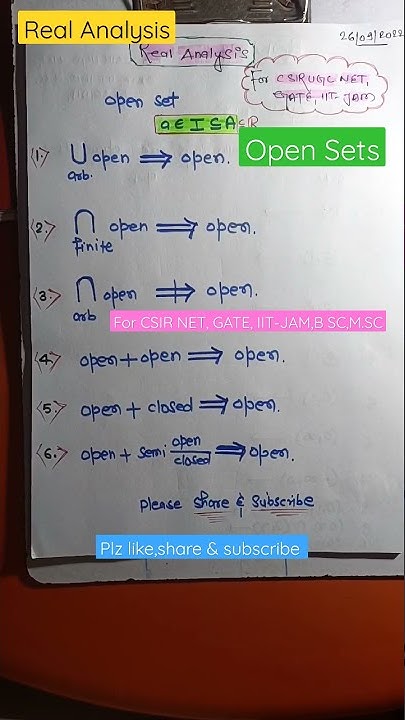 Real Analysis
26/09/2022
Real Analysis
For CSIR UGC NET,
GATE, IIT JAM
open set
a ∈ I ⊆ A ⊆ R
Open Sets
<1.> ∪ open ⟹ open.
arb.
<2.> ∩ open ⟹ open.
finite
<3.> ∩ open ⇏ open.
arb
For CSIR NET, GATE, IIT-JAM,B SC,M.SC
<4.> open + open ⟹ open.
<5.> open + closed ⟹ open.
<6.> open + semi open/closed ⟹ open.
Please Share & Subscribe
Plz like,share & subscribe